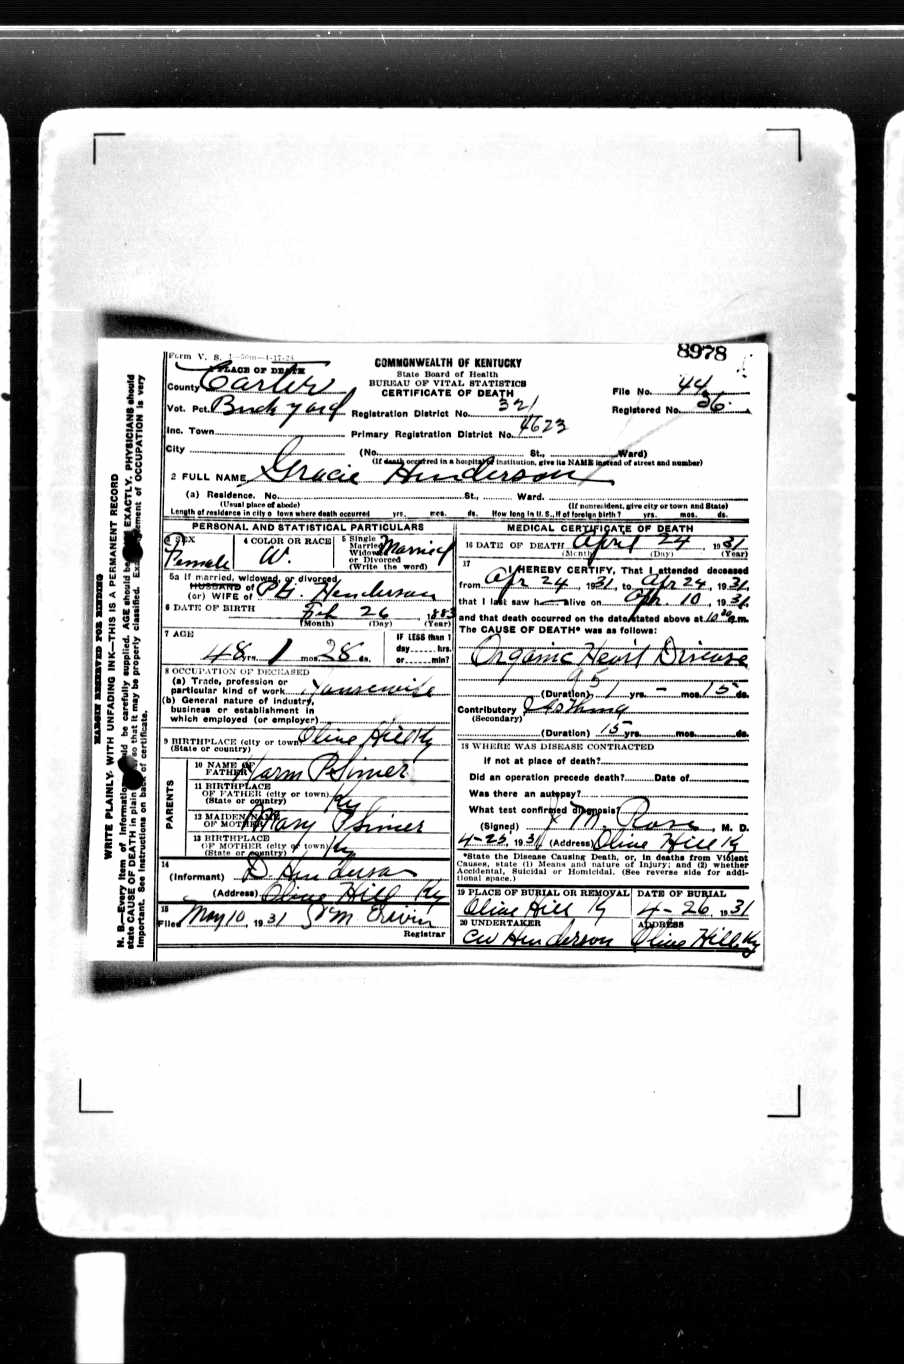 8978
Form V. S. 1—50m—4-17-24
PLACE OF DEATH
County Carter
Vot. Pct.
Inc. Town
City
COMMONWEALTH OF KENTUCKY
State Board of Health
BUREAU OF VITAL STATISTICS
CERTIFICATE OF DEATH
Registration District No. 321
Primary Registration District No. 4623
File No. 44
Registered No. 36
(No. St., Ward)
(If death occurred in a hospital or institution, give its NAME instead of street and number)
2 FULL NAME Gracie Henderson
(a) Residence. No. St., Ward.
(Usual place of abode) (If nonresident, give city or town and State)
Length of residence in city o town where death occurred yrs. mos. ds. How long in U. S., if of foreign birth? yrs. mos. ds.
PERSONAL AND STATISTICAL PARTICULARS
3 SEX
Female
4 COLOR OR RACE
W.
5 Single
Married
Widowed
or Divorced
(Write the word)
Married
5a If married, widowed, or divorced
HUSBAND of
(or) WIFE of Henderson
6 DATE OF BIRTH Feb 26, 1883
(Month) (Day) (Year)
7 AGE
48 yrs. 1 mos. 28 ds.
IF LESS than 1
day hrs.
or min?
8 OCCUPATION OF DECEASED
(a) Trade, profession or
particular kind of work Housewife
(b) General nature of industry,
business or establishment in
which employed (or employer)
9 BIRTHPLACE (city or town) Olive Hill Ky
(State or country)
PARENTS
10 NAME OF
FATHER
11 BIRTHPLACE
OF FATHER (city or town) Ky
(State or country)
12 MAIDEN NAME
OF MOTHER Mary
13 BIRTHPLACE
OF MOTHER (city or town) Ky
(State or country)
14
(Informant) D. Henderson
(Address) Olive Hill Ky
15
Filed May 10, 1931
Registrar
MEDICAL CERTIFICATE OF DEATH
16 DATE OF DEATH April 24, 1931
(Month) (Day) (Year)
17
I HEREBY CERTIFY, That I attended deceased
from Apr 24, 1931, to Apr 24, 1931,
that I last saw h alive on Apr 10, 1931,
and that death occurred on the date stated above at 10 30 a.m.
The CAUSE OF DEATH* was as follows:
Organic Heart Disease
95
(Duration) 1 yrs. - mos. 15 ds.
Contributory
(Secondary)
(Duration) 15 yrs. mos. ds.
18 WHERE WAS DISEASE CONTRACTED
If not at place of death?
Did an operation precede death? Date of
Was there an autopsy?
What test confirmed diagnosis?
(Signed) J M. Rose, M. D.
4-25, 1931 (Address) Olive Hill Ky
*State the Disease Causing Death, or, in deaths from Violent
Causes, state (1) Means and nature of Injury; and (2) whether
Accidental, Suicidal or Homicidal. (See reverse side for addi-
tional space.)
19 PLACE OF BURIAL OR REMOVAL
Olive Hill Ky
DATE OF BURIAL
4-26, 1931
20 UNDERTAKER
CW Henderson
ADDRESS
Olive Hill, Ky
MARGIN RESERVED FOR BINDING
WRITE PLAINLY, WITH UNFADING INK—THIS IS A PERMANENT RECORD
N. B.—Every item of information should be carefully supplied. AGE should be EXACTLY. PHYSICIANS should
state CAUSE OF DEATH in plain so that it may be properly classified. OCCUPATION is very
important. See instructions on back of certificate.